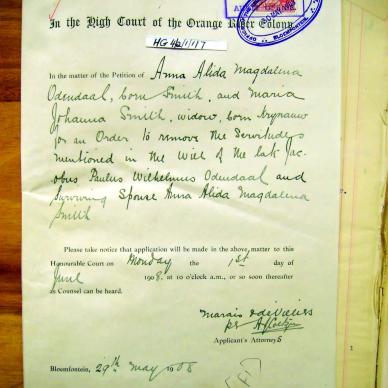 In the High Court of the Orange River Colony.
HG 4/2/1/1/7
BLOEMFONTEIN
In the matter of the Petition of Anna Alida Magdalena
Odendaal, born Smith, and Maria
Johanna Smith, widow, born Strynauw
for an Order to remove the Servitudes
mentioned in the Will of the late Jac-
obus Paulus Wilhelmus Odendaal and
Surviving Spouse Anna Alida Magdalena
Smith
Please take notice that application will be made in the above matter to this
Honourable Court on Monday the 1st day of
June 1908, at 10 o'clock a.m., or so soon thereafter
as Counsel can be heard.
Marais & de Villiers
per
Applicant's Attorneys
Bloemfontein, 29th May 1908